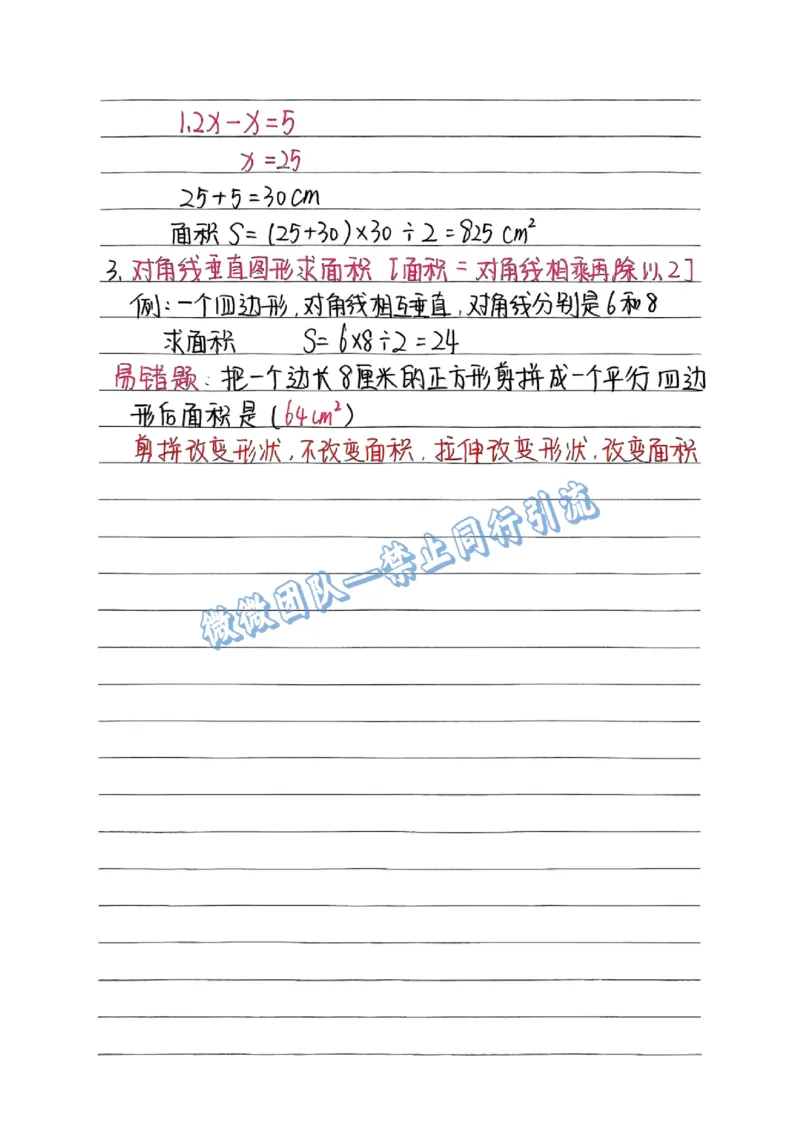 1.2x-x=5
x=25
25+5=30cm
面积 S=(25+30)×30÷2=825 cm²
3. 对角线垂直图形求面积 [面积=对角线相乘再除以2]
例:一个四边形,对角线相互垂直,对角线分别是6和8
求面积 S=6×8÷2=24
易错题:把一个边长8厘米的正方形剪拼成一个平行四边
形后面积是(64cm²)
剪拼改变形状,不改变面积,拉伸改变形状,改变面积
微微团队一禁止同行引流